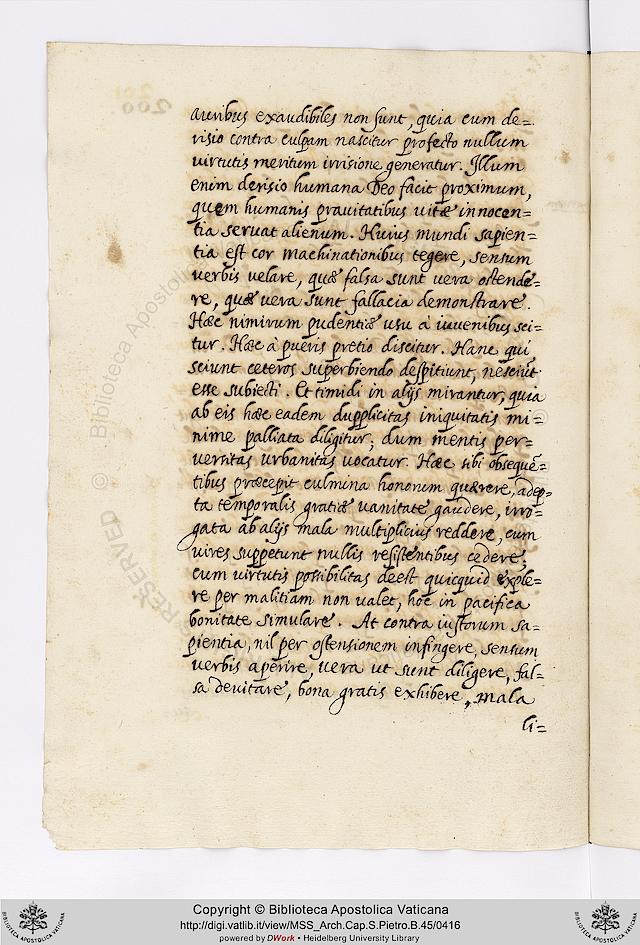 auribus exaudibiles non sunt, quia cum de=
risio contra culpam nascitur profecto nullum
virtutis meritum irrisione generatur. Illum
enim derisio humana Deo facit proximum,
quem humanis pravitatibus vitæ innocen=
tia servat alienum. Huius mundi sapien=
tia est cor machinationibus tegere, sensum
verbis velare, quæ falsa sunt vera ostende=
re, quæ vera sunt fallacia demonstrare.
Hæc nimirum pudentiæ usu à iuvenibus sci=
tur. Hæc à pueris pretio discitur. Hanc qui
sciunt ceteros superbiendo despitiunt, nesciũt
esse subiecti. Et timidi in alijs mirantur, quia
ab eis hæc eadem dupplicitas iniquitatis mi=
nime palliata diligitur; dum mentis per=
versitas urbanitas vocatur. Hæc sibi obsequẽ=
tibus præcepit culmina honorum quærere, adep=
ta temporalis gratiæ vanitate gaudere, irro=
gata ab alijs mala multiplicius reddere, cum
vires suppetunt nullis resistentibus cedere,
cum virtutis possibilitas deest quicquid exple=
re per malitiam non valet, hoc in pacifica
bonitate simulare. At contra iustorum sa=
pientia, nil per ostensionem infingere, sensum
verbis aperire, vera ut sunt diligere, fal=
sa devitare, bona gratis exhibere, mala
li=
RESERVED © Biblioteca Apostolica
Copyright © Biblioteca Apostolica Vaticana
http://digi.vatlib.it/view/MSS_Arch.Cap.S.Pietro.B.45/0416
powered by DWork • Heidelberg University Library
BIBLIOTECA APOSTOLICA VATICANA
BIBLIOTECA APOSTOLICA VATICANA